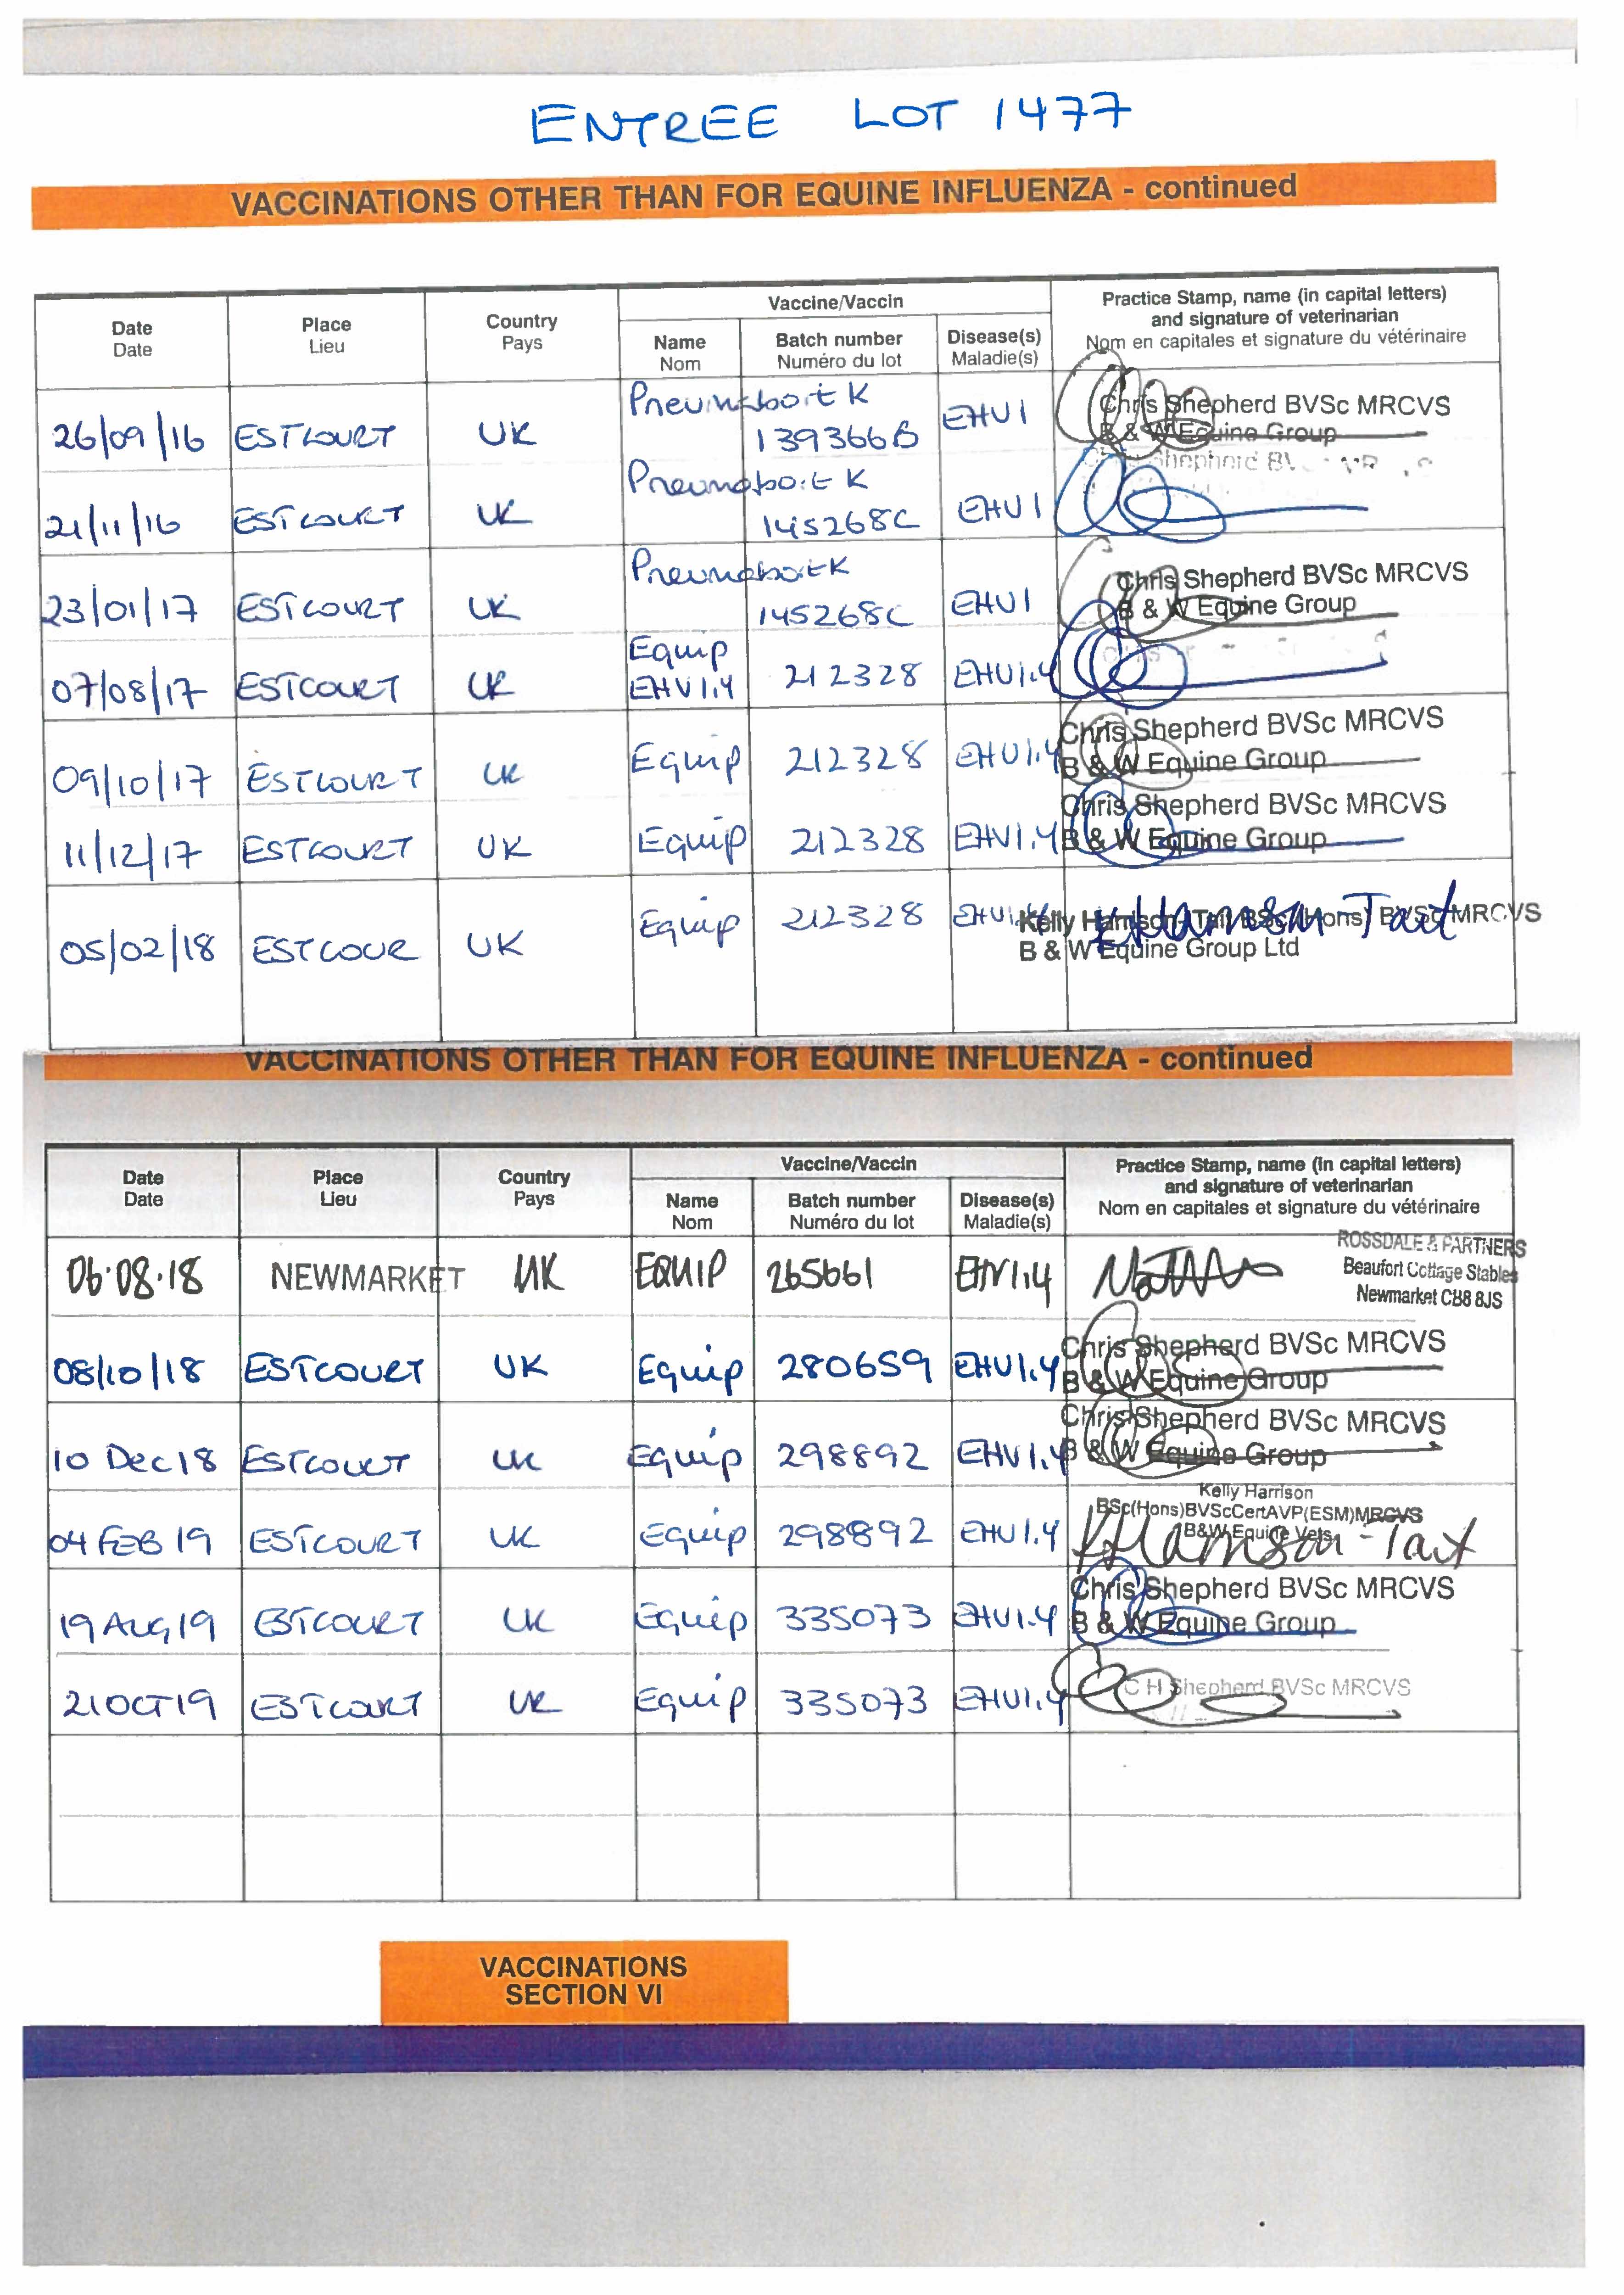 ENTREE LOT 1477
VACCINATIONS OTHER THAN FOR EQUINE INFLUENZA - continued
Date Date
Place Lieu
Country Pays
Vaccine/Vaccin
Name Nom
Batch number Numéro du lot
Disease(s) Maladie(s)
Practice Stamp, name (in capital letters)
and signature of veterinarian
Nom en capitales et signature du vétérinaire
26/09/16 ESTCOURT UK Pneumabort K 139366B EHV1 Chris Shepherd BVSc MRCVS
B & W Equine Group
21/11/16 ESTCOURT UK Pneumabort K 145268C EHV1 Shepherd
23/01/17 ESTCOURT UK Pneumabort K 145268C EHV1 Chris Shepherd BVSc MRCVS
B & W Equine Group
07/08/17 ESTCOURT UK Equip EHV1.4 212328 EHV1.4
09/10/17 ESTCOURT UK Equip 212328 EHV1.4 Chris Shepherd BVSc MRCVS
B & W Equine Group
11/12/17 ESTCOURT UK Equip 212328 EHV1.4 Chris Shepherd BVSc MRCVS
B & W Equine Group
05/02/18 ESTCOUR UK Equip 212328 EHV1.4 Kelly Harrison-Tait BSc (Hons) BVSc MRCVS
B & W Equine Group Ltd
KHarrison-Tait
VACCINATIONS OTHER THAN FOR EQUINE INFLUENZA - continued
Date Date
Place Lieu
Country Pays
Vaccine/Vaccin
Name Nom
Batch number Numéro du lot
Disease(s) Maladie(s)
Practice Stamp, name (in capital letters)
and signature of veterinarian
Nom en capitales et signature du vétérinaire
06.08.18 NEWMARKET UK EQUIP 265661 EHV1.4 ROSSDALE & PARTNERS
Beaufort Cottage Stables
Newmarket CB8 8JS
08/10/18 ESTCOURT UK Equip 280659 EHV1.4 Chris Shepherd BVSc MRCVS
B & W Equine Group
10 Dec 18 ESTCOURT UK Equip 298892 EHV1.4 Chris Shepherd BVSc MRCVS
B & W Equine Group
04 FEB 19 ESTCOURT UK Equip 298892 EHV1.4 Kelly Harrison
BSc(Hons)BVScCertAVP(ESM)MRCVS
B&W Equine Vets
KHarrison-Tait
19 AUG 19 ESTCOURT UK Equip 335073 EHV1.4 Chris Shepherd BVSc MRCVS
B & W Equine Group
21 OCT 19 ESTCOURT UK Equip 335073 EHV1.4 C H Shepherd BVSc MRCVS
VACCINATIONS
SECTION VI